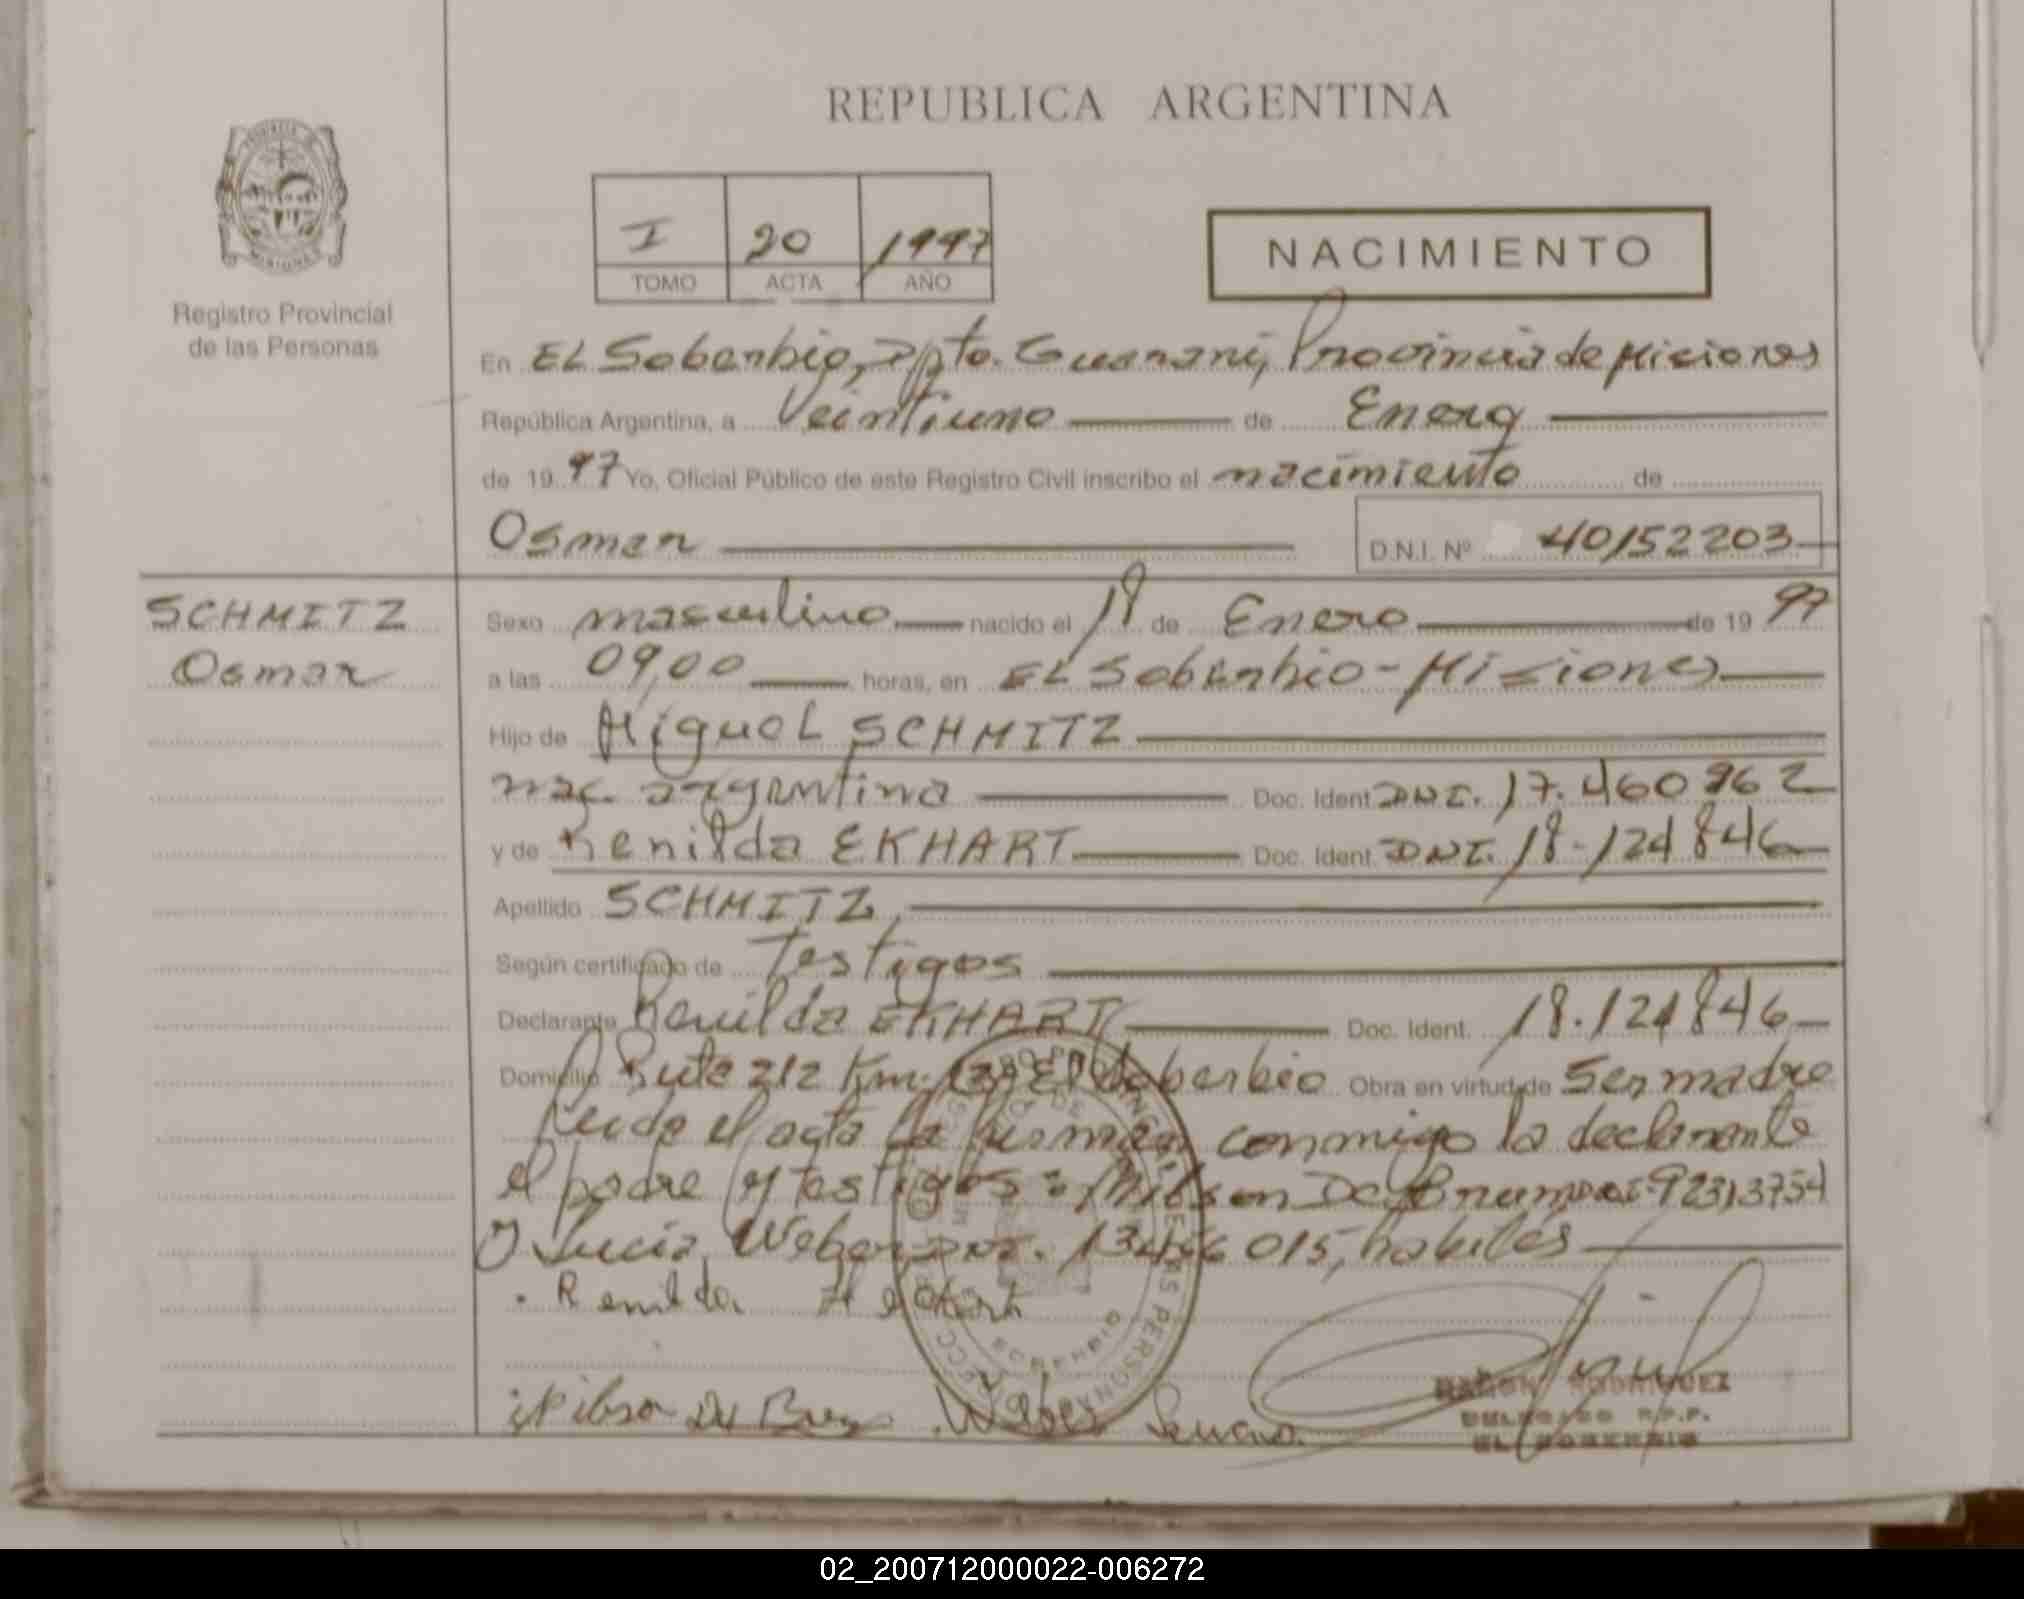 REPUBLICA ARGENTINA
I 20 1997
TOMO ACTA AÑO
NACIMIENTO
Registro Provincial
de las Personas
En EL Soberbio, Dpto. Guarani, Provincia de Misiones
República Argentina, a Veintiuno de Enero
de 1997 Yo, Oficial Público de este Registro Civil inscribo el nacimiento de
Osmar D.N.I. Nº 40152203
SCHMITZ
Osmar
Sexo masculino nacido el 18 de Enero de 1997
a las 09,00 horas, en EL Soberbio - Misiones
Hijo de Miguel SCHMITZ
nac. argentina Doc. Ident DNI. 17.460962
y de Renilda EKHART Doc. Ident. DNI. 18.124846
Apellido SCHMITZ
Según certificado de Testigos
Declarante Renilda EKHART Doc. Ident. 18.124846
Domicilio Ruta 212 Km. El Soberbio Obra en virtud de Ser madre
Leida el acta la firman conmigo la declarante
el padre y testigos: Nilson De Brum DNI. 92313754
y Lucia Weber DNI. 015, habiles
Renilda
Nilson De Weber
RAMON RODRIGUEZ
DELEGADO R.P.P.
EL SOBERBIO
02_200712000022-006272